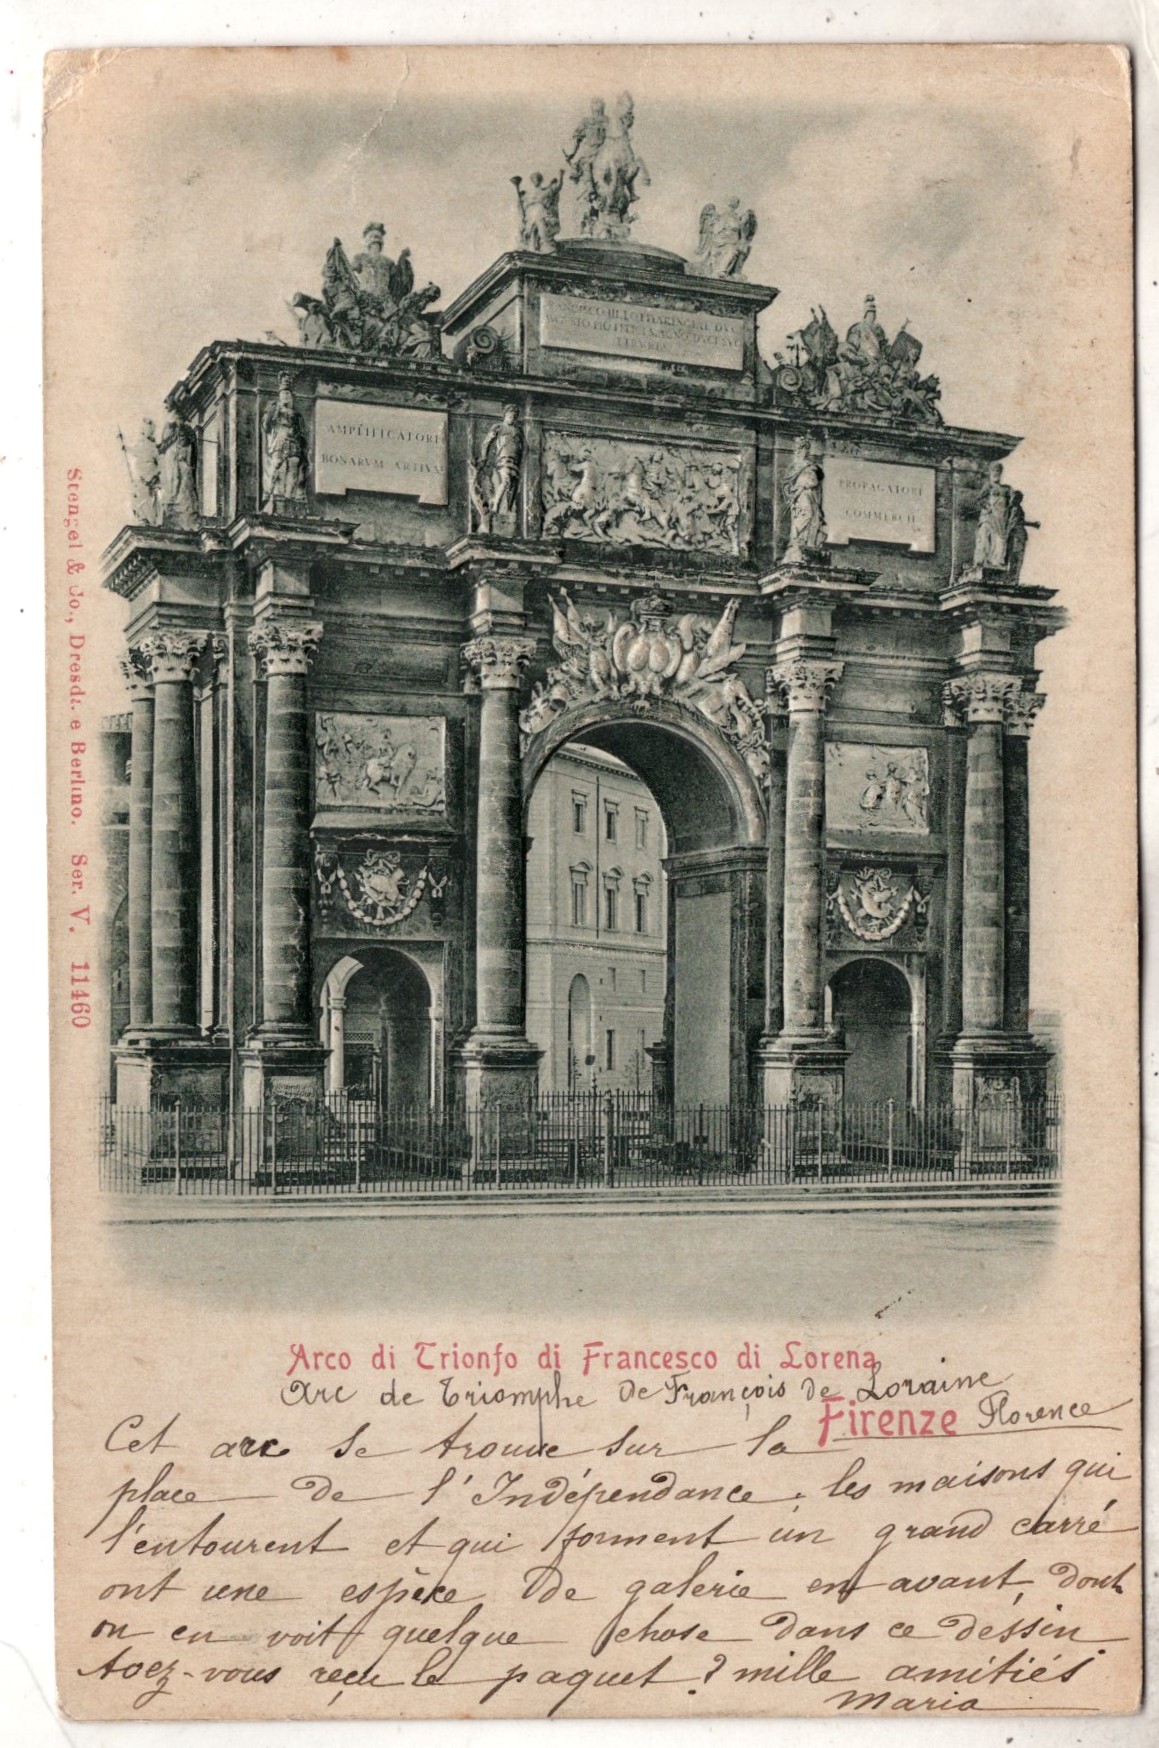 AMPLIFICATORI
BONARVM ARTIVM
PROPAGATORI
COMMERCII
Stengel & Co., Dresda e Berlino. Ser. V. 11460
Arco di Trionfo di Francesco di Lorena
Arc de Triomphe de François de Loraine
Firenze Florence
Cet arc se trouve sur la
place de l'Indépendance. les maisons qui
l'entourent et qui forment un grand carré
ont une espèce de galerie en avant, dont
on en voit quelque chose dans ce déssin.
Avez-vous reçu le paquet? mille amitiés
Maria